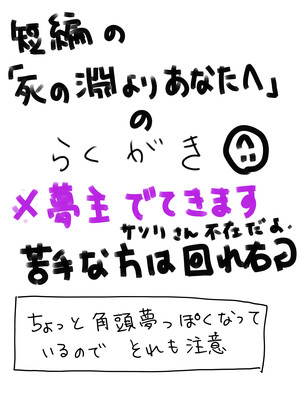 短編の
「死の淵よりあなたへ」
の
らくがき
×夢主 でてきます
サソリさん不在だよ.
苦手な方は回れ右
ちょっと角頭夢っぽくなって
いるので それも注意